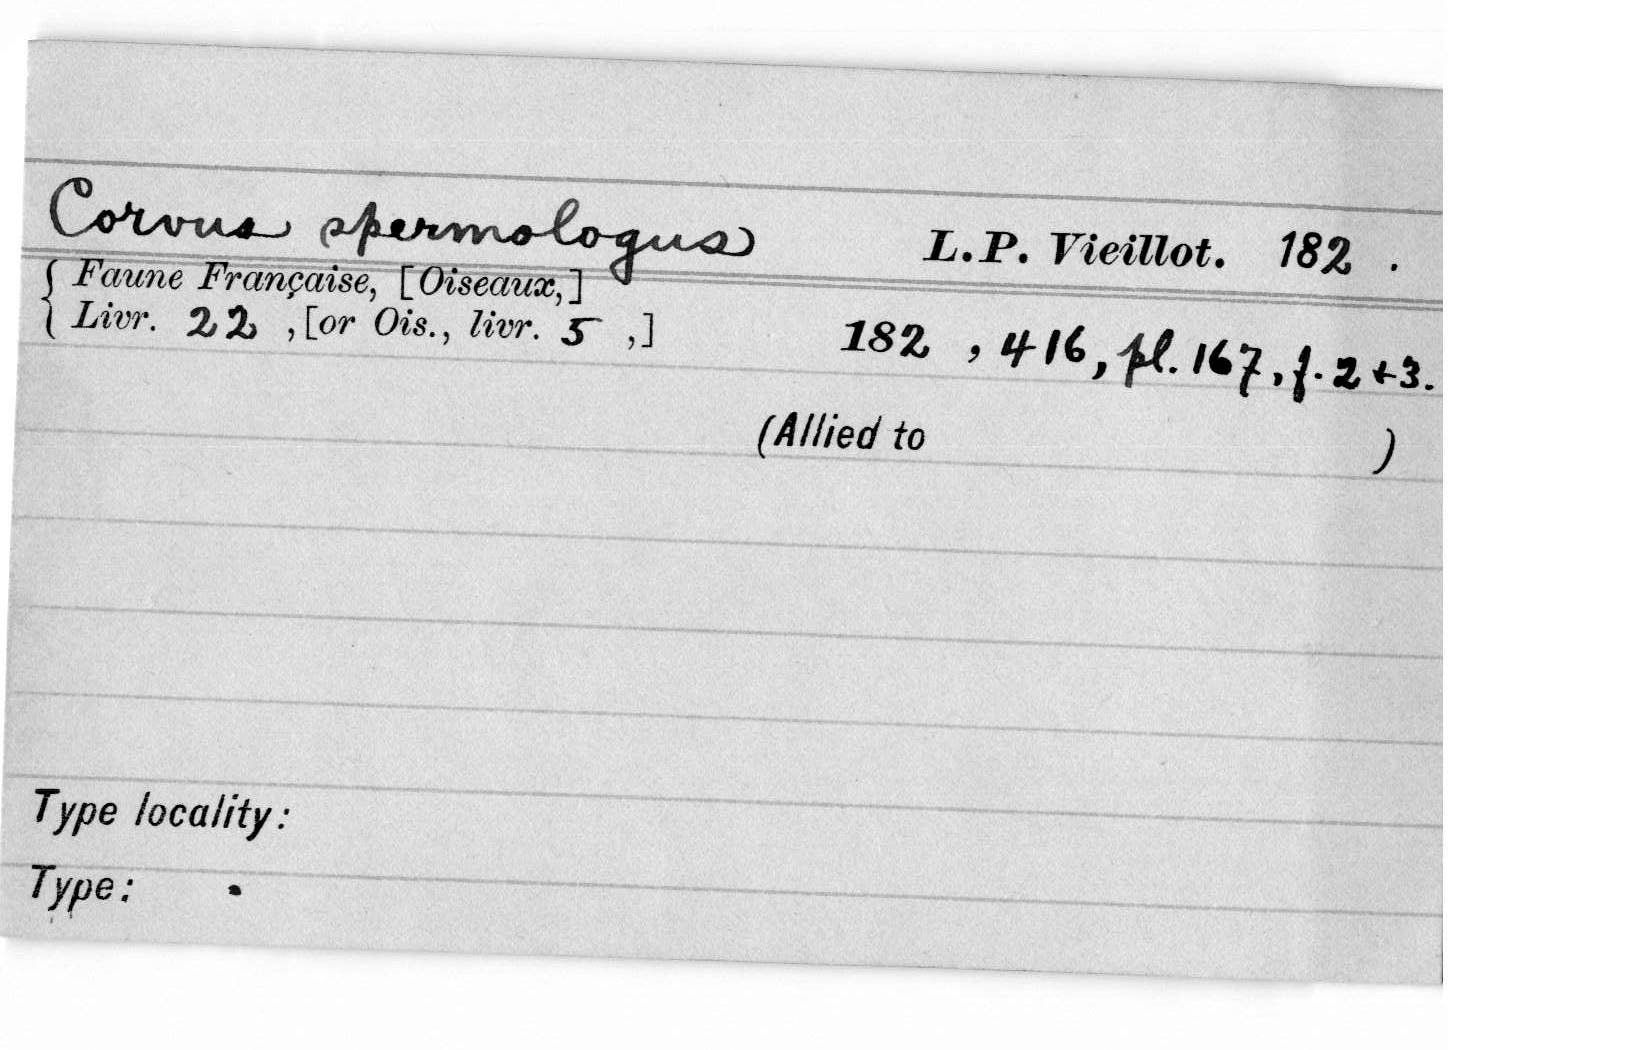 Corvus spermologus L.P. Vieillot. 182 .
Faune Française, [Oiseaux,]
Livr. 22 ,[or Ois., livr. 5 ,] 182 , 416, pl. 167, f. 2+3.
(Allied to )
Type locality:
Type: